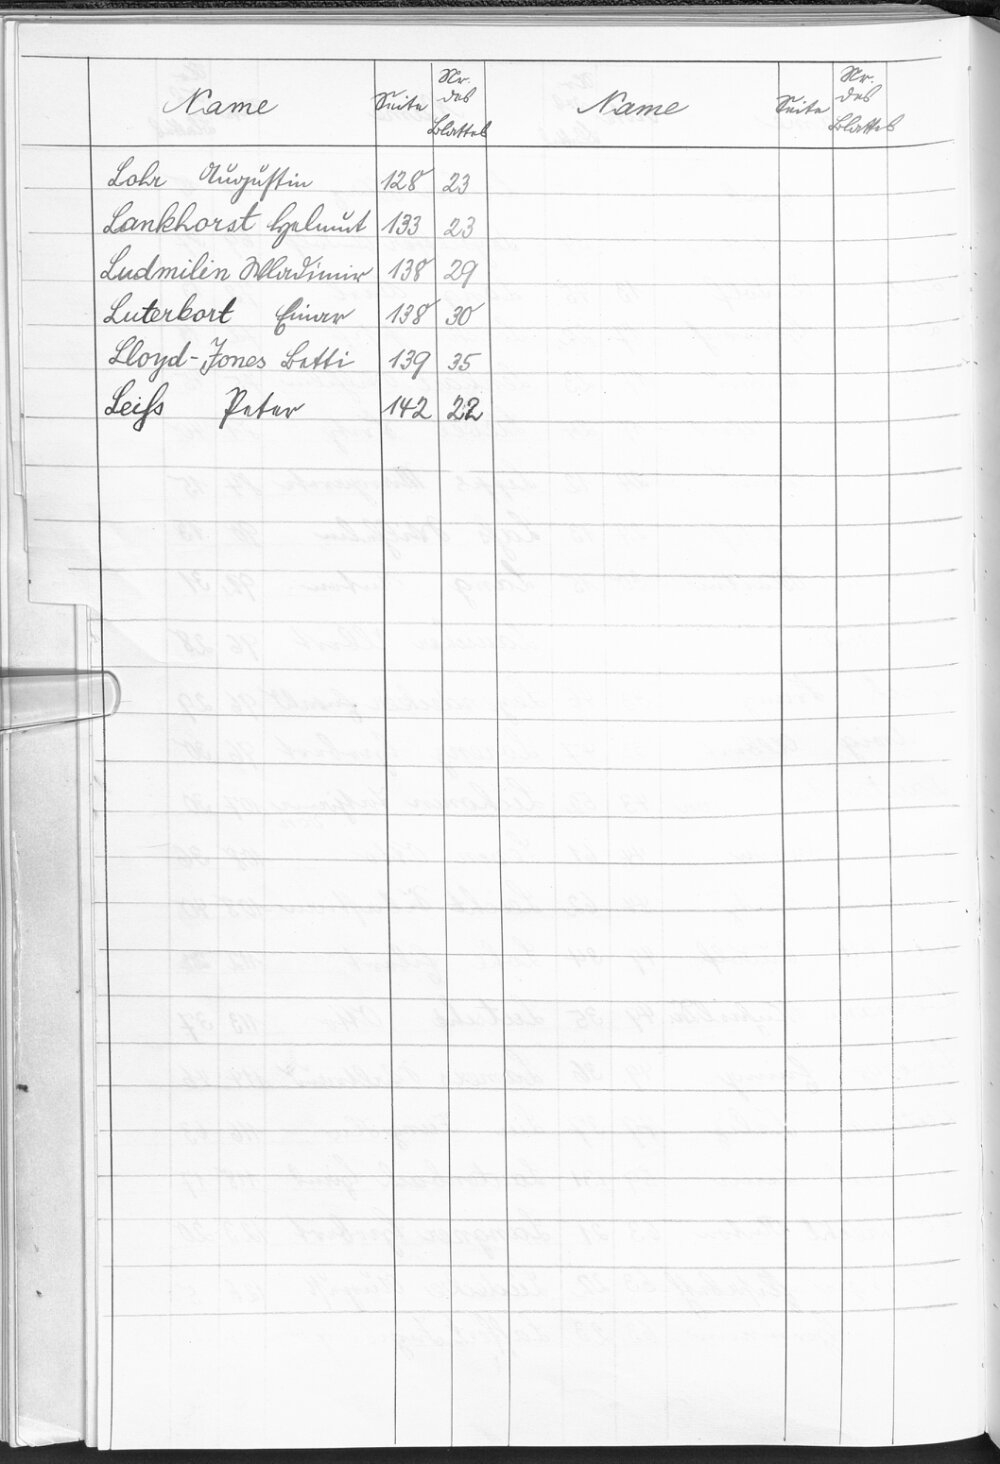 Name Seite Nr. des Blattes Name Seite Nr. des Blattes
Lohr Augustin 128 23
Lankhorst Helmut 133 23
Ludmilin Wladimir 138 29
Luterkort Einar 138 30
Lloyd-Jones Betti 139 35
Leiss Peter 142 22